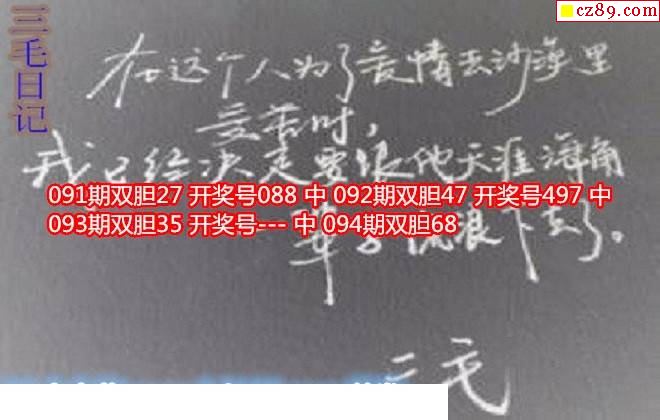 三毛日记
cz89.com
在这个人为了爱情去沙漠里
受苦时，
我已经决定要跟他天涯海角
091期双胆27 开奖号088 中 092期双胆47 开奖号497 中
093期双胆35 开奖号--- 中 094期双胆68
流浪下去了。
三毛